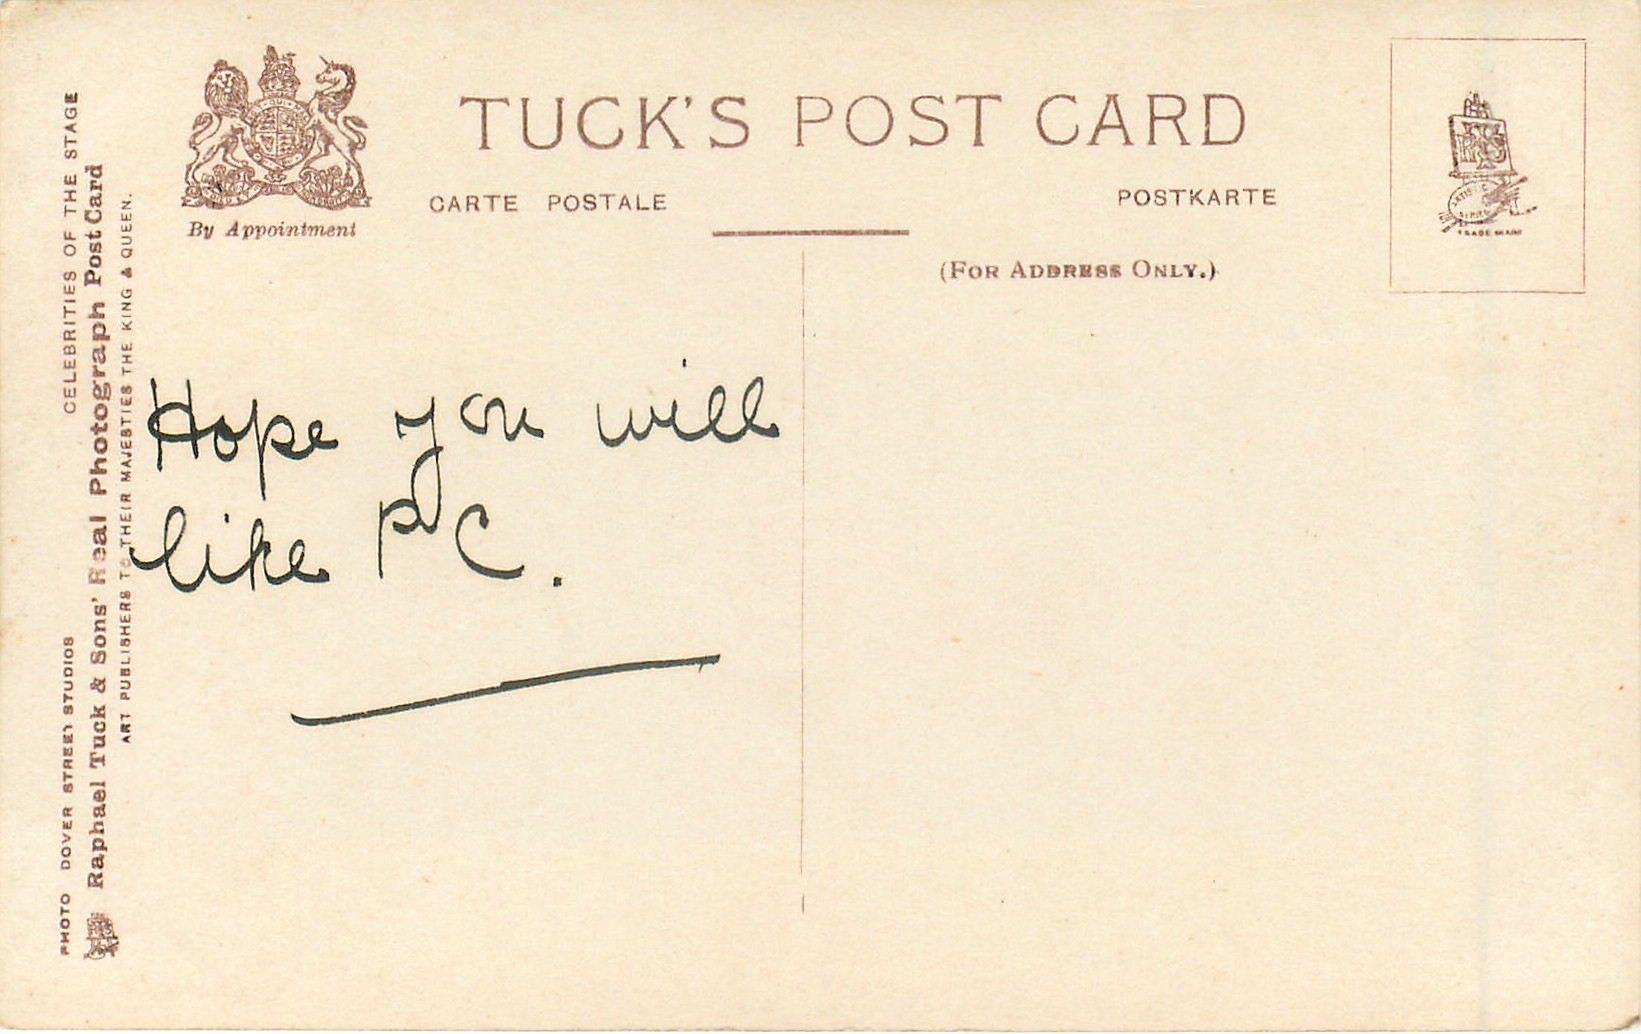 TUCK'S POST CARD
CARTE POSTALE
POSTKARTE
By Appointment
(FOR ADDRESS ONLY.)
TRADE MARK
Hope you will
like PC.
PHOTO DOVER STREET STUDIOS CELEBRITIES OF THE STAGE
Raphael Tuck & Sons' Real Photograph Post Card
ART PUBLISHERS TO THEIR MAJESTIES THE KING & QUEEN.